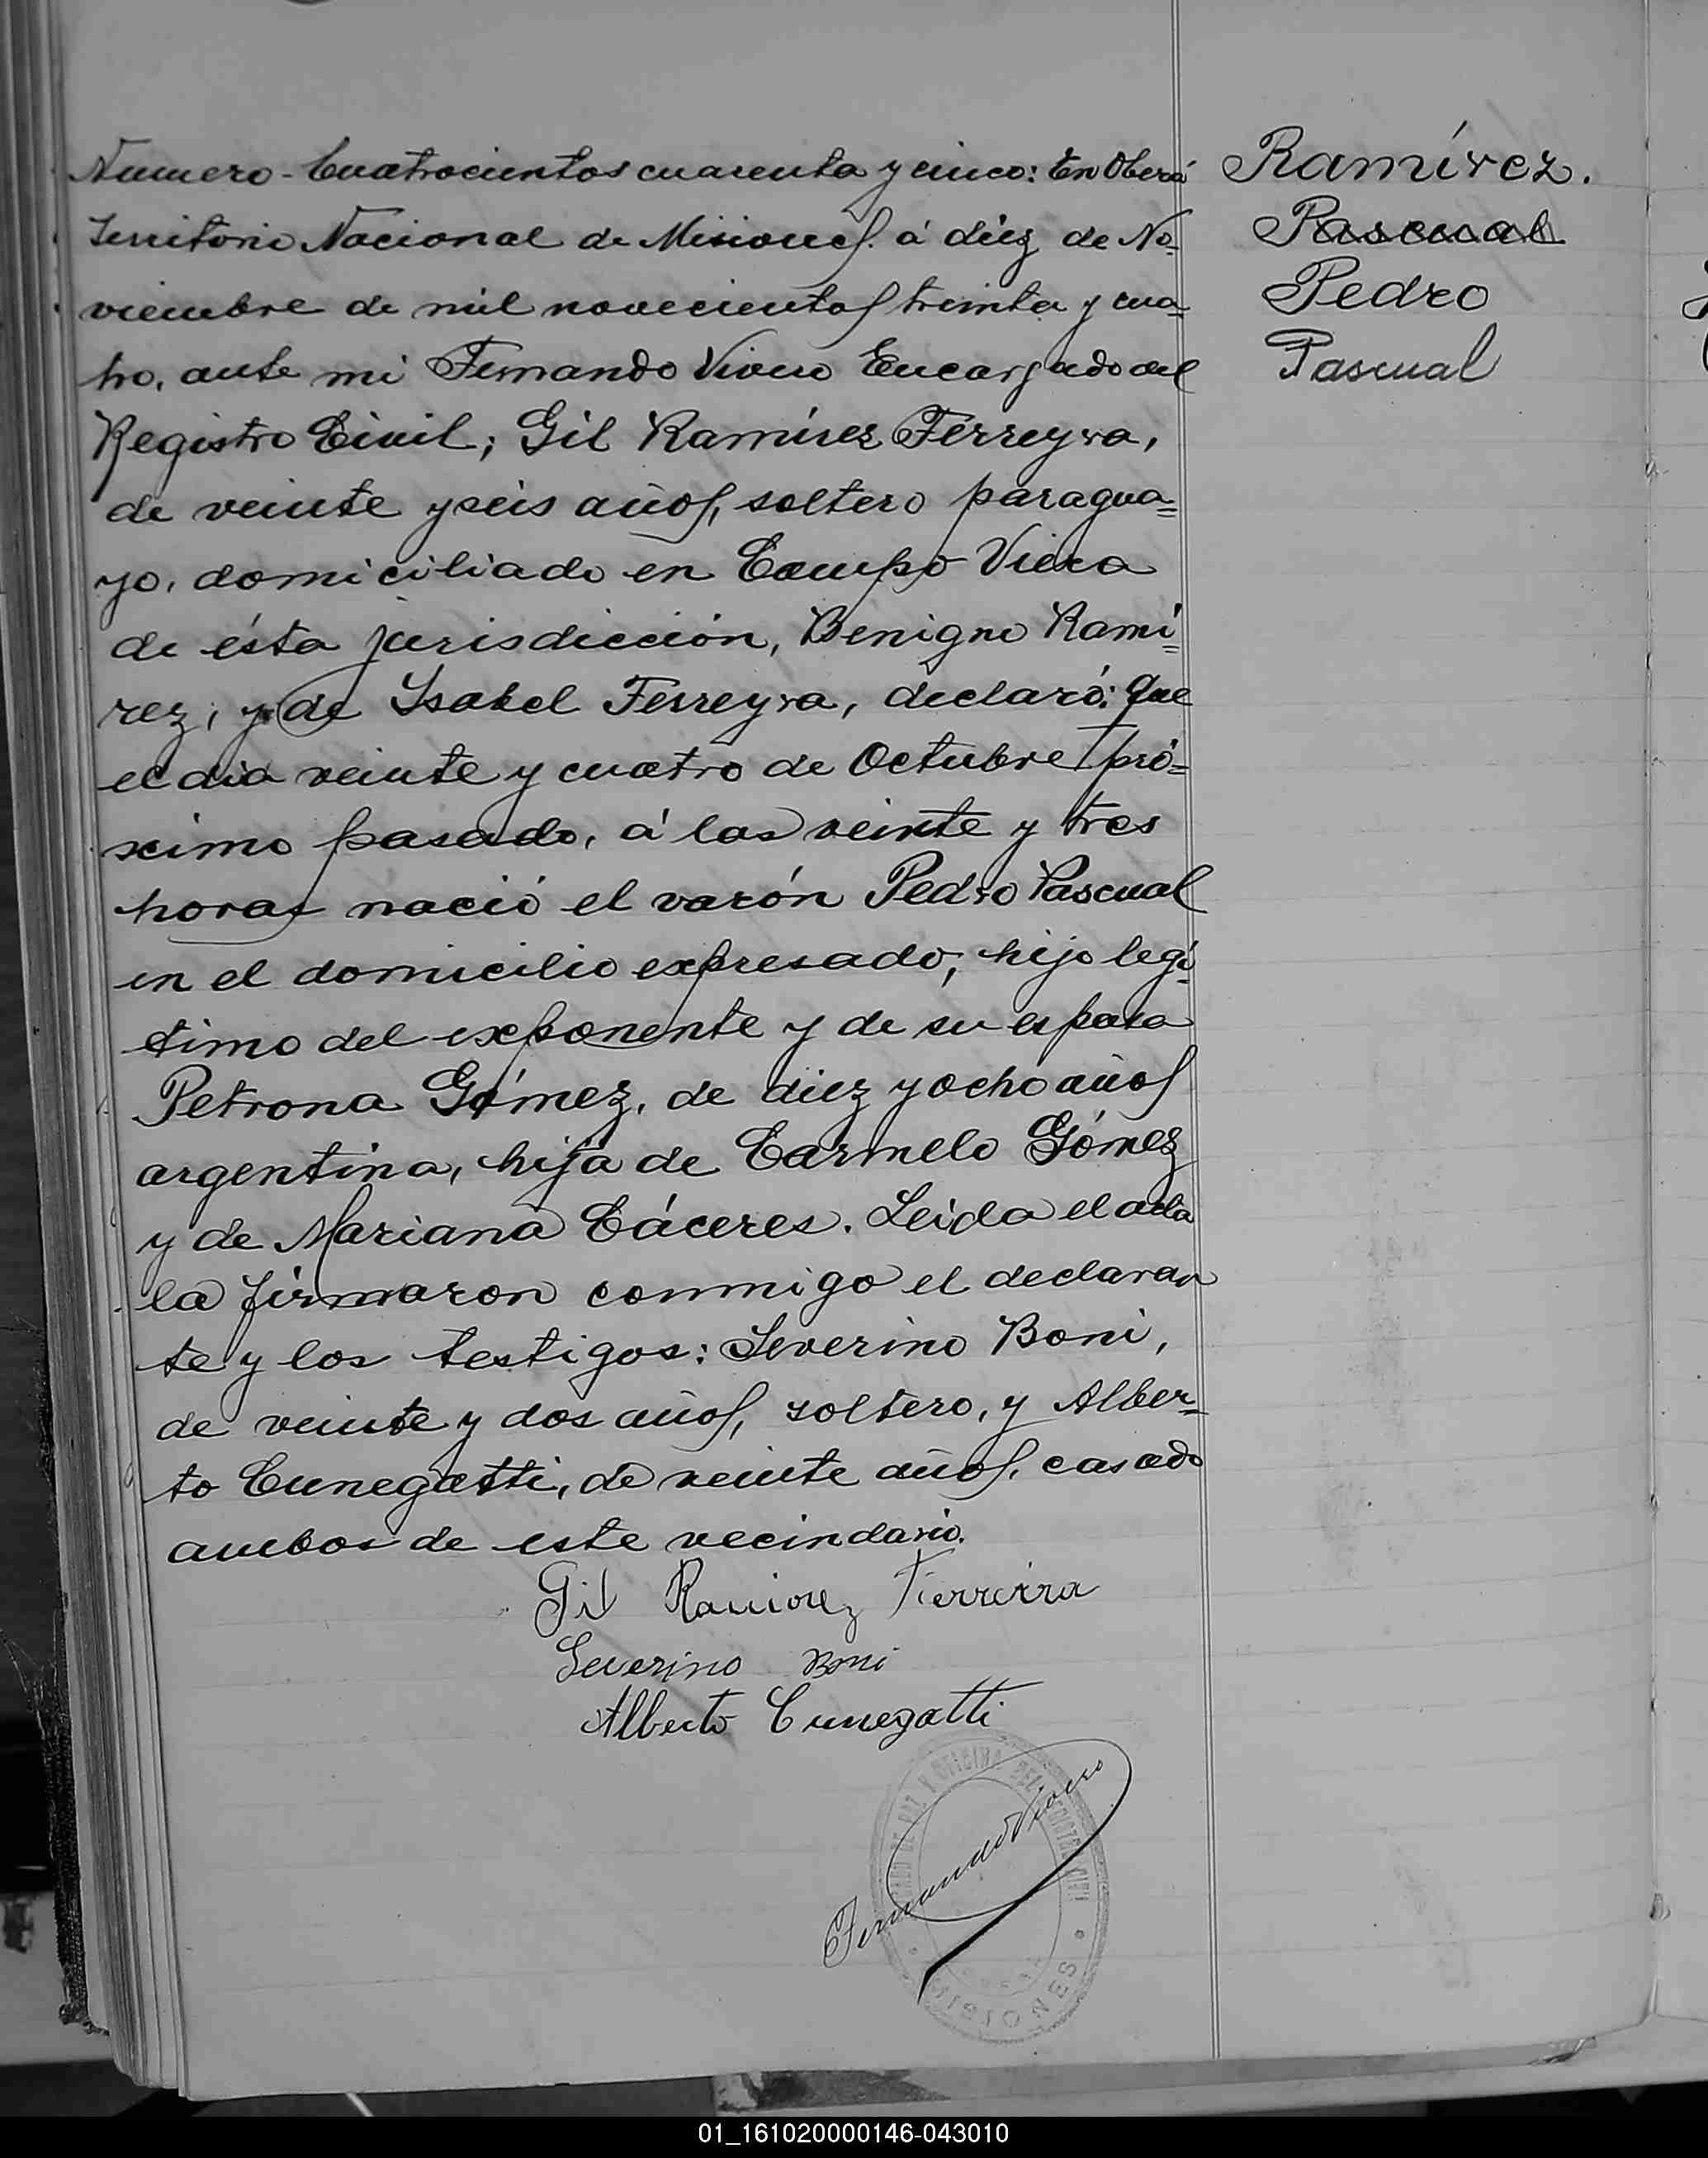 Numero - Cuatrocientos cuarenta y cinco: En Oberá
Territorio Nacional de Misiones. á diez de No=
viembre de mil novecientos treinta y cua=
tro, ante mi Fernando Vivero Encargado del
Registro Civil; Gil Ramírez Ferreyra,
de veinte y seis años, soltero paragua=
yo, domiciliado en Campo Viera
de ésta jurisdicción, Benigno Ramí=
rez, y de Isabel Ferreyra, declaró: Que
el dia veinte y cuatro de Octubre pró=
ximo pasado, á las veinte y tres
horas nació el varón Pedro Pascual
en el domicilio expresado; hijo legí=
timo del exponente y de su esposa
Petrona Gómez, de diez y ocho años
argentina, hija de Carmelo Gómez
y de Mariana Cáceres. Leida el acta
la firmaron conmigo el declaran
te y los testigos: Severino Boni,
de veinte y dos años, soltero, y Alber=
to Cunegatti, de veinte años, casado
ambos de este vecindario.
Gil Ramirez Ferreira
Severino Boni
Alberto Cunegatti
Fernando Vivero
OFICINA DEL REGISTRO CIVIL
MISIONES
Ramírez.
Pascual
Pedro
Pascual
01_161020000146-043010